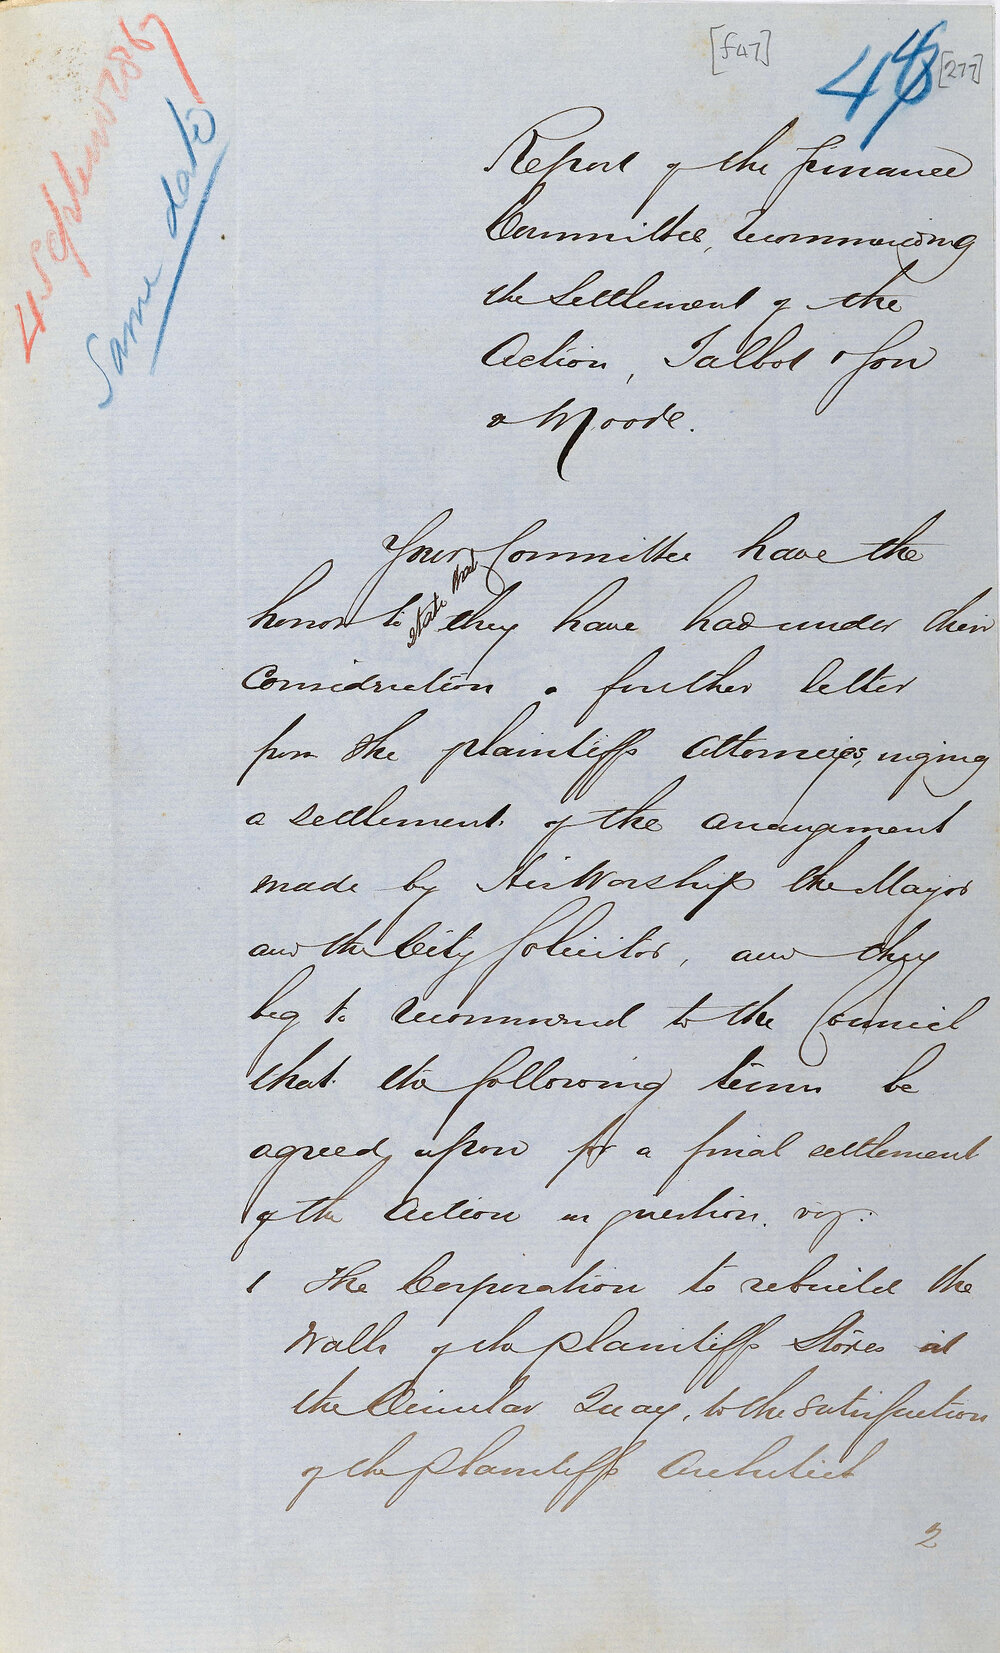 [f47]
48
[277]
4 September 1867
Same date
Report of the Finance
Committee, recommending
the Settlement of the
Action, Talbot & Son
v Moore.
Your Committee have the
honor to state that they have had under their
Consideration a further letter
from the plaintiffs Attorneys, urging
a settlement of the arrangement
made by His Worship the Mayor
and the City Solicitor, and they
beg to recommend to the Council
that the following terms be
agreed upon for a final settlement
of the Action in question. viz:
1 The Corporation to rebuild the
Walls of the plaintiffs Stores at
the Circular Quay, to the satisfaction
of the plaintiffs Architect
2